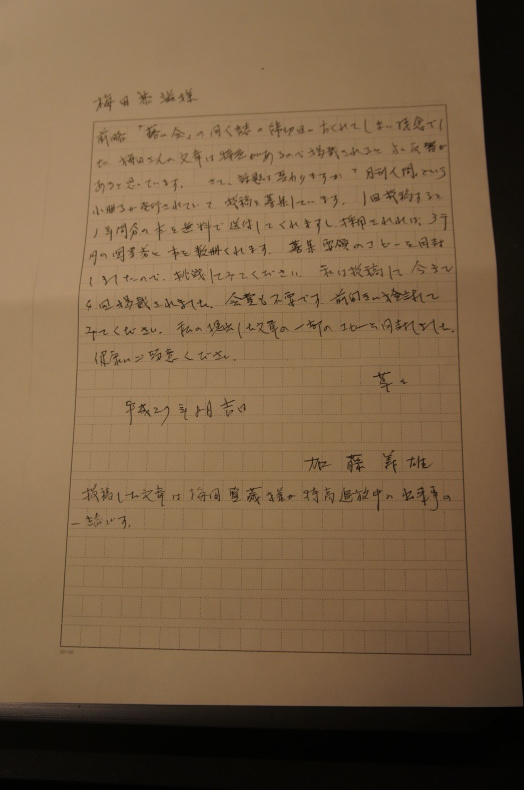 梅田 様
前略 「 会」の同人誌の締切日におくれてしまい残念でし
た。梅田さんの文章は があるので掲載されると よい反響が
あると思っています。 さて、話題は変わりますが「月刊人間」という
小冊子が発行されていて 投稿を募集しています。1回投稿すると
1年間分の本を無料で送付してくれますし、採用されれば、3千
円の図書券と本を数冊くれます。 募集要領のコピーを同封
しましたので、挑戦してみてください。私は投稿して今まで
4回掲載されました。会費も不要です。前向きに検討して
みてください。私の提出した文章の一部のコピーを同封しました。
健康にご留意ください。
草々
平成27年 月吉日
加藤義雄
投稿した文章は 梅田 様が特高 中の出来事の
一 です。